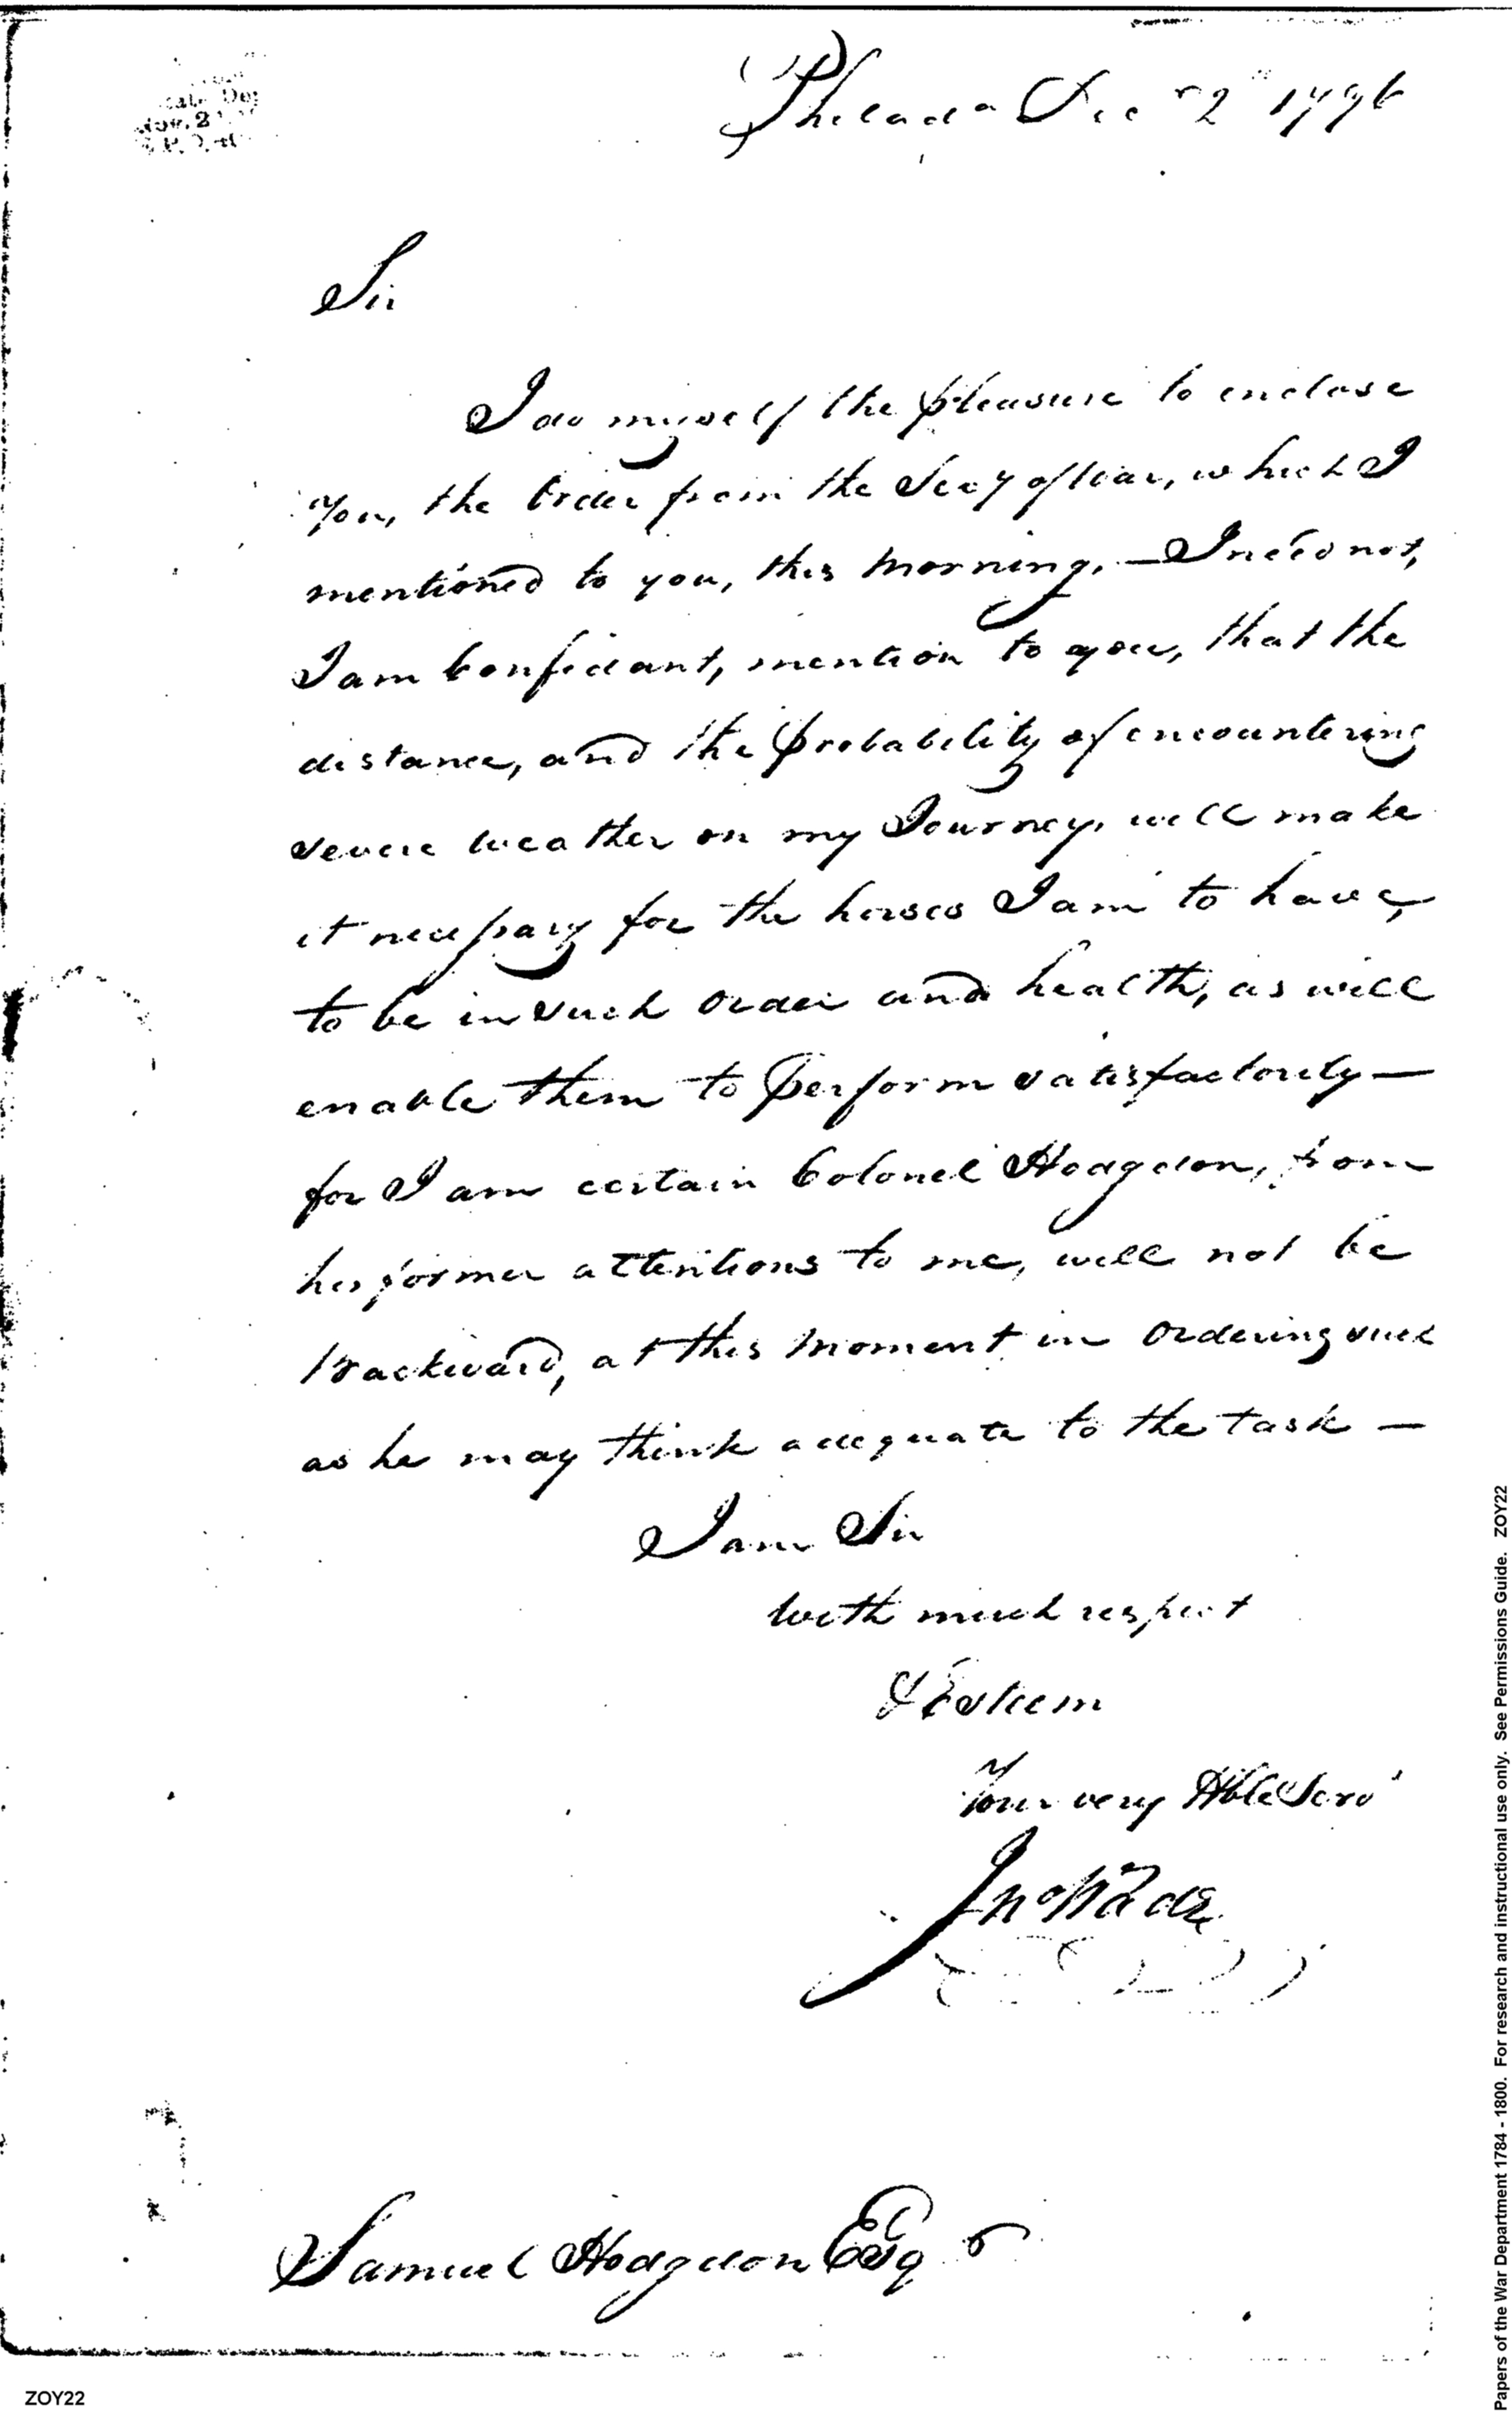 Philada Decr 2d 1796
Sir
I do myself the pleasure to enclose
you, the Order from the Secy of War, which I
mentioned to you, this Morning. — I need not,
I am Confidant, mention to you, that the
distance, and the probability of encountering
severe weather on my Journey, will make
it necessary for the horses I am to have,
to be in such Order and health, as will
enable them to perform satisfactorily —
for I am certain Colonel Hodgdon, from
his former attentions to me, will not be
Backward, at this Moment in Ordering such
as he may think adequate to the task —
I am Sir
With much respect
& Esteem
Your very Hble Servt
Jno Wade
Samuel Hodgdon Esqr
ZOY22
Papers of the War Department 1784 - 1800. For research and instructional use only. See Permissions Guide. ZOY22